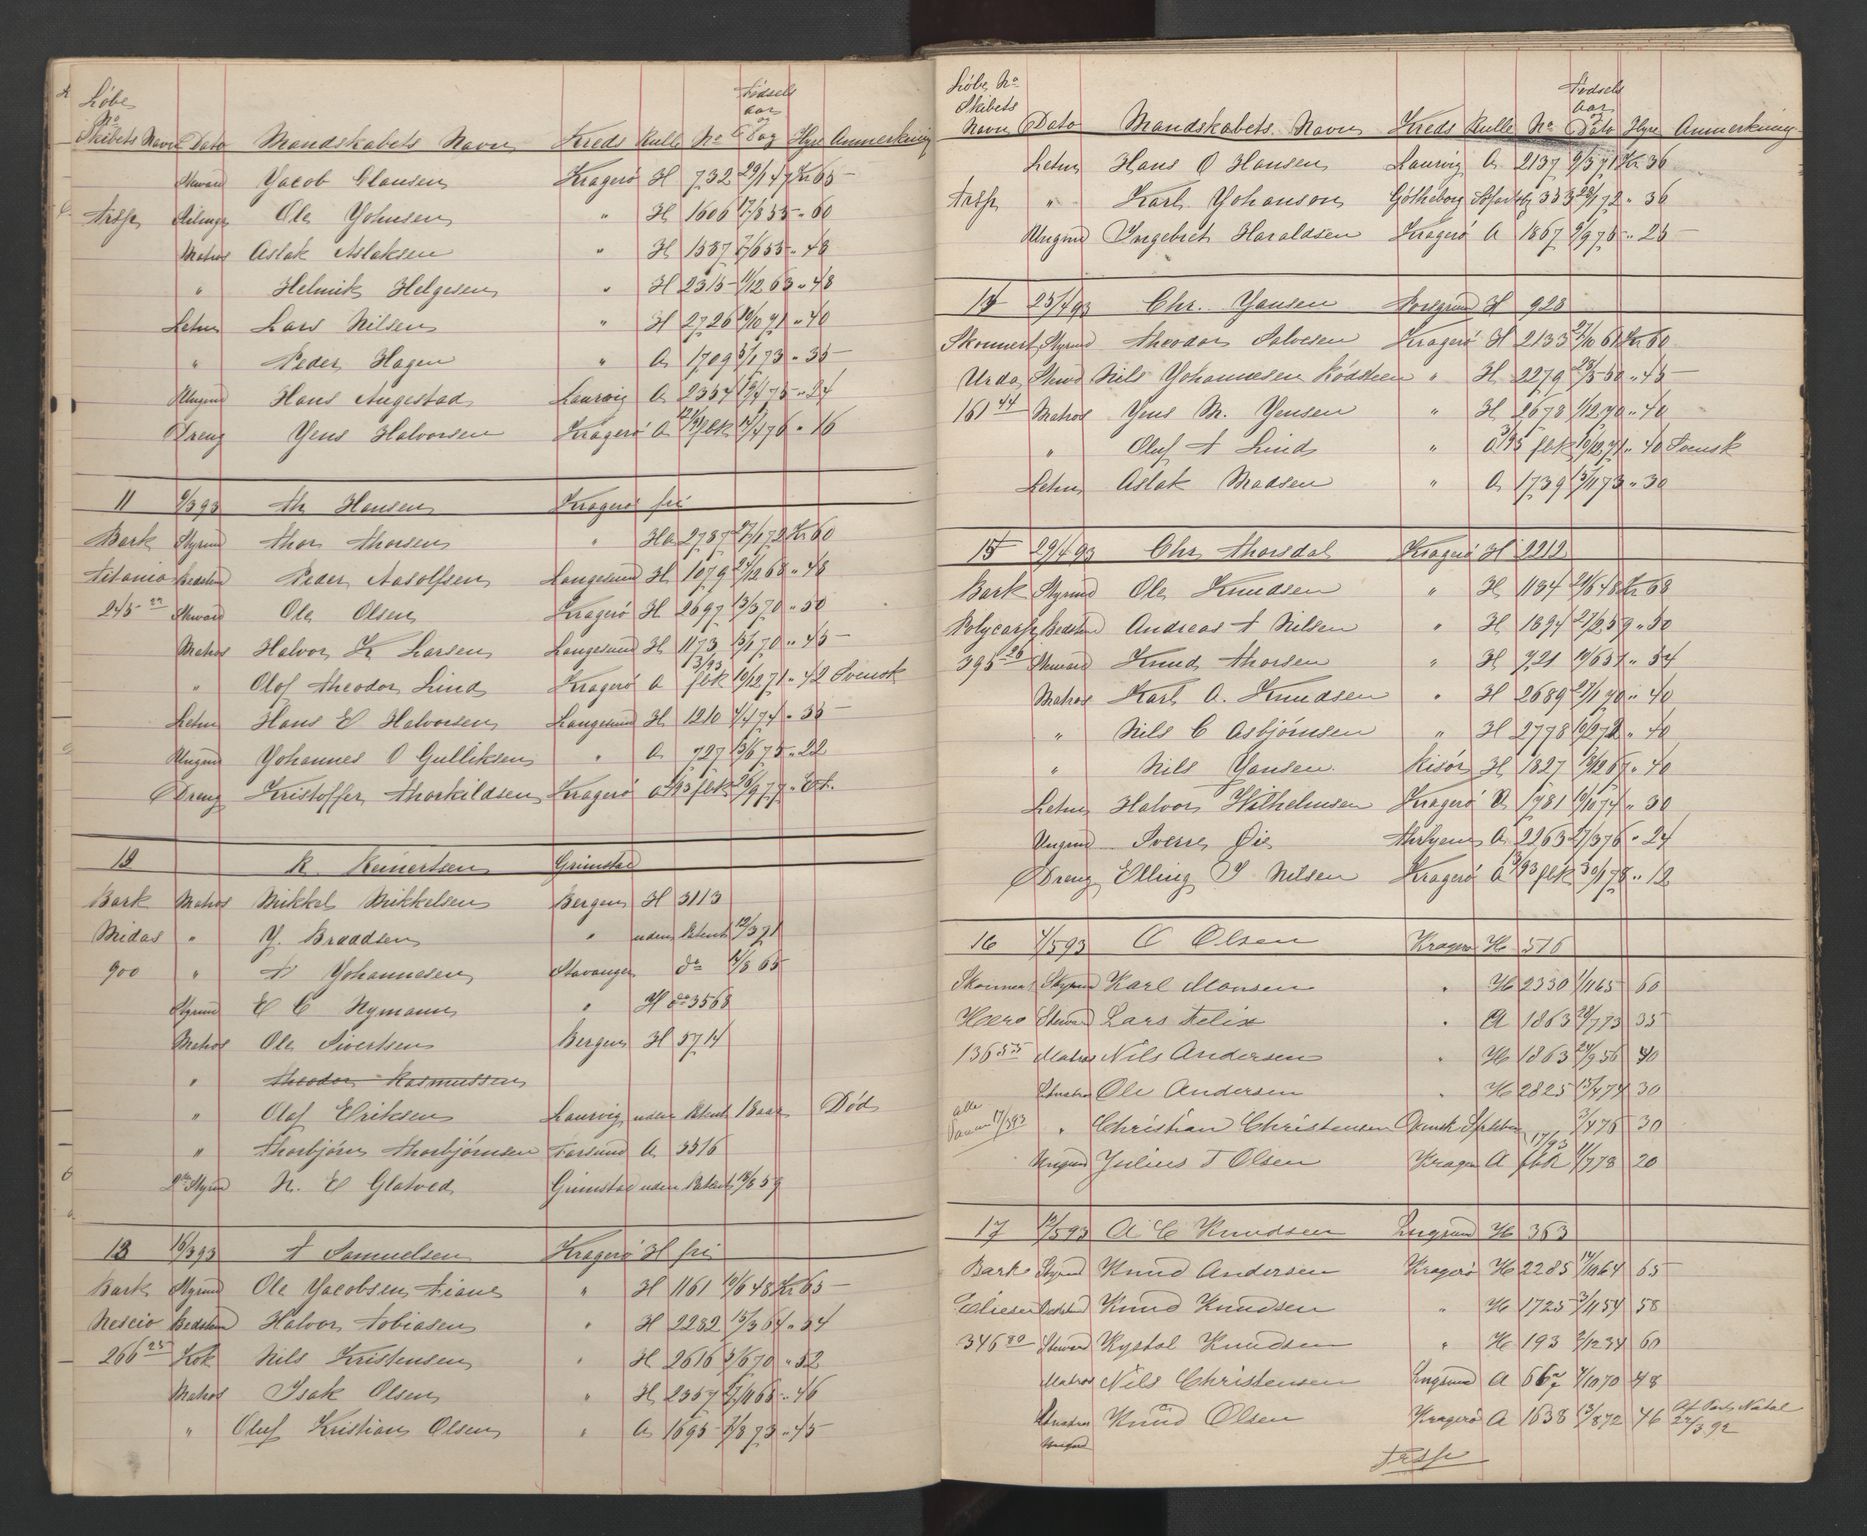 Løbe
No
Skibets Navn Dato Mandskabets Navn Kreds Rulle No Fødsels aar og Dag Hyre Anmerkning
Stuard Jacob Clausen Kragerø H 732 29/1 47 Kr 65
Trsp Ole Johnsen " H 1606 17/8 55 " 60
Matros Aslak Aslaksen " H 1537 7/6 53 " 48
" Helmik Helgesen " H 2315 11/12 63 " 48
Letm Lars Nilsen " H 2726 10/10 71 " 40
" Peder Hagen " A 1709 5/1 73 " 35
Ungmd Hans Angestad Laurvig A 2354 19/4 75 " 24
Dreng Jens Halvorsen Kragerø A fbk 14/4 76 " 16
11 9/3 93 Th Hansen Kragerø fri
Bark Styrmd Thor Thorsen " H 2787 27/1 72 Kr 60
Titania Bedstmd Peder Aasolfsen Langesund H 1079 24/12 68 " 48
245 Stuard Ole Olsen Kragerø H 2697 13/3 70 " 50
Matros Halvor K Larsen Langesund H 1173 15/1 70 " 45
" Olof Theodor Lind Kragerø A 13/93 fbk 10/12 71 " 42 Svensk
Letm Hans E Halvorsen Langesund H 1210 4/4 74 " 35
Ungmd Johannes O Gulliksen " A 727 13/6 75 " 22
Dreng Kristoffer Thorkildsen Kragerø A fbk 26/9 77 "
12 R. Reinertsen Grimstad
Bark Matros Mikkel Mikkelsen Bergen H 3113
Midas " J. Braadsen " uden Patent 19/3 71
900 " T Johannesen Stavanger do 14/8 65
Styrmd E C Nymann " H do 3568
Matros Ole Sivertsen Bergen H 5714
" Theodor Rasmussen
" Olaf Eriksen Laurvig uden Patent 18 aar Død
" Thorbjørn Thorbjørnsen Farsund A 3316
2den Styrmd N. E Glatved Grimstad uden Patent 19/8 59
13 16/3 93 T Samuelsen Kragerø H fri
Bark Styrmd Ole Jacobsen Tiane " H 1161 10/6 48 Kr 65
Nescio Bedstmd Halvor Tobiasen " H 2282 15/3 64 " 54
266 25 Kok Nils Kristensen " H 2616 3/6 70 " 52
Matros Isak Olsen " H 2357 27/11 65 " 46
" Oluf Kristian Olsen " A 1695 2/8 73 " 45
Løbe No
Skibets
Navn Dato Mandskabets Navn Kreds Rulle No Fødsels aar og Dato Hyre Anmerkning
Letm Hans O Hansen Laurvig A 2137 9/3 71 Kr 36
Trsp " Karl Johanson Götheborg 353 23/1 72 " 36
Ungmd Ingebret Haraldsen Kragerø A 1867 9/9 76 " 25
14 25/4 93 Chr. Jansen Porsgrund H 928
Skonnert Styrmd Theodor Salvesen Kragerø H 2133 27/10 61 Kr 60
Urda Stuard Nils Johannesen Rødsteen " H 2279 23/5 60 " 45
161 44 Matros Jens M. Jensen " H 2678 1/12 70 " 40
" Oluf T Lind " A fbk 10/12 71 " 40 Svensk
Letm Aslak Madsen " A 1739 13/11 73 " 30
15 29/4 93 Chr Thorsdal Kragerø H 2212
Bark Styrmd Ole Knudsen " H 1184 21/6 48 Kr 68
Polycarp Bedstmd Andreas T Nilsen " H 1894 27/2 59 " 50
395 26 Stuard Knud Thorsen " H 721 10/6 51 " 54
Matros Karl A. Knudsen " H 2689 27/1 70 " 40
" Nils C Asbjørnsen " H 2778 10/2 72 " 40
" Nils Jansen Risør H 1827 18/12 67 " 40
Letm Halvor Wilhelmsen Kragerø A 1781 10/10 74 " 30
Ungmd Sverre Øie A 2263 27/3 76 " 24
Dreng Elling J Nilsen Kragerø A fbk 30/1 78 " 12
16 4/5 93 O Olsen Kragerø H 516
Skonnert Styrmd Karl Monsen " H 2330 1/11 65 60
Hero Stuard Lars Felix " A 1863 28/7 73 35
136 55 Matros Nils Andersen " H 1863 24/9 56 40
Letmatros Ole Andersen " H 2825 13/4 74 30
alle 17/3 93 " Christian Christensen Dansk 3/4 75 30
Ungmd Julius T Olsen Kragerø A 17/93 fbk 11/7 78 20
17 12/5 93 A C Knudsen Lngsund H 363
Bark Styrmd Knud Andersen Kragerø H 2285 14/10 64 65
Elieser Bedstmd Knud Knudsen " H 1725 3/11 54 58
346 80 Stuard Kystol Knudsen " H 193 2/12 34 60
Matros Nils Christensen Lngsund A 662 4/10 70 48
Letmatros Knud Olsen Kragerø A 1638 13/8 72 46 Af Port Natal 24/3 92
Ungmd
Trsp